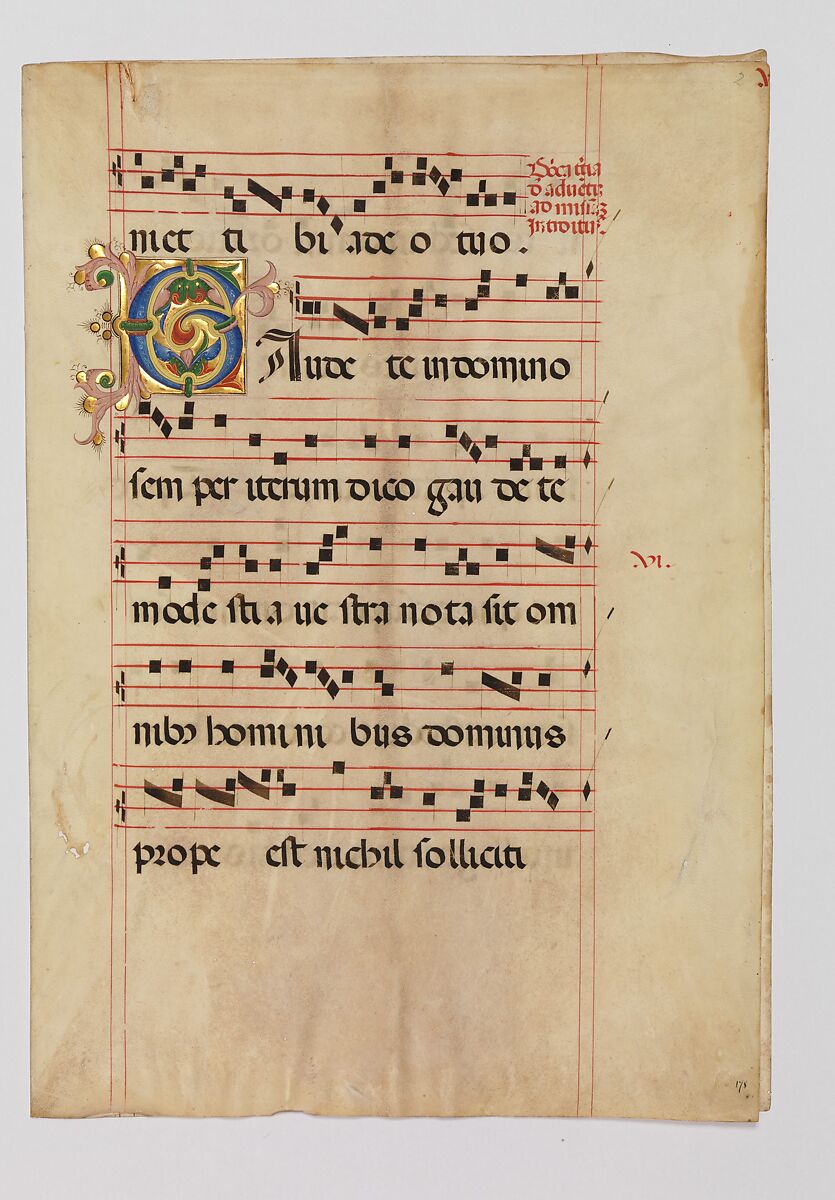 2
niet ti bi ade o tuo.
Dñca t͛cia
d̄ aduētꝰ
ad misā
Introitus
GAude te in domino
sem per iterum dico gau de te
mode sti a ue stra nota sit om
.VI.
nibꝰ homini bus dominus
prope est nichil solliciti
178